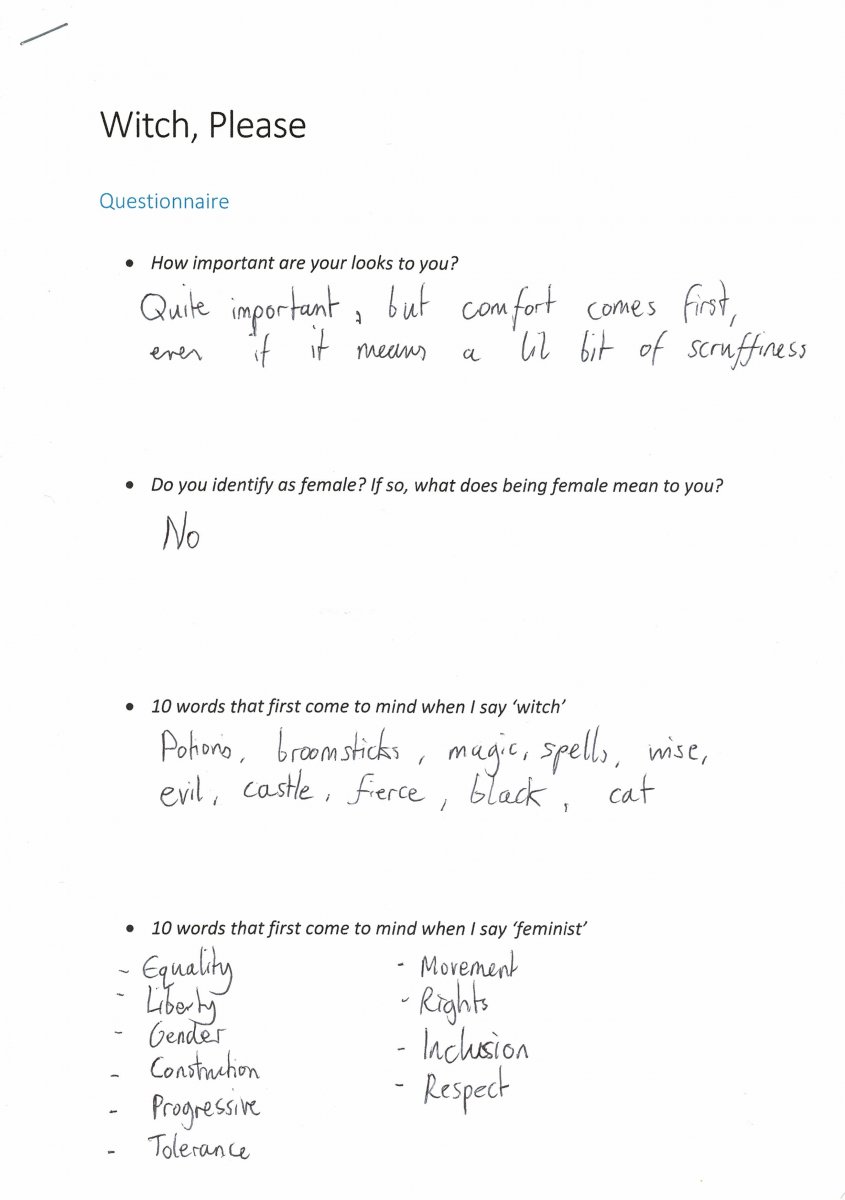 Witch, Please
Questionnaire
• How important are your looks to you?
Quite important, but comfort comes first,
even if it means a lil bit of scruffiness
• Do you identify as female? If so, what does being female mean to you?
No
• 10 words that first come to mind when I say ‘witch’
Potions, broomsticks, magic, spells, wise,
evil, castle, fierce, black, cat
• 10 words that first come to mind when I say ‘feminist’
- Equality
- Liberty
- Gender
- Construction
- Progressive
- Tolerance
- Movement
- Rights
- Inclusion
- Respect